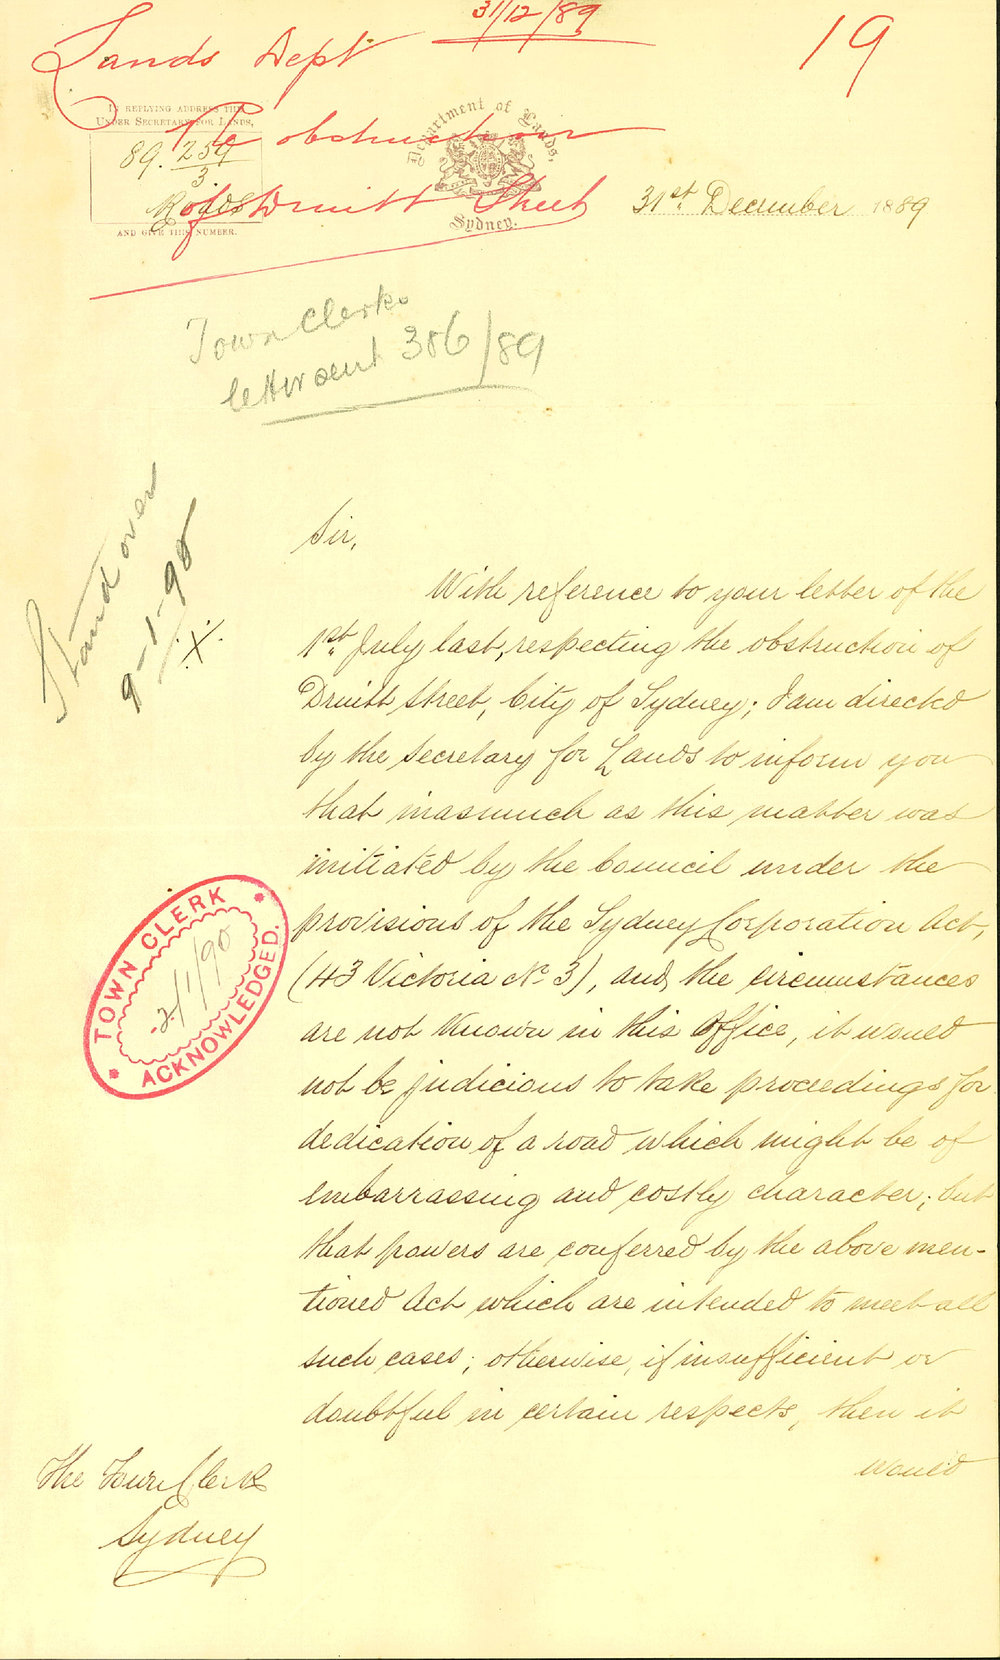 31/12/89
19
Lands Dept
Re obstruction
of Druitt Street
IN REPLYING ADDRESS THE
UNDER SECRETARY FOR LANDS,
89. 259
3
Roads
AND GIVE THIS NUMBER.
Department of Lands,
Sydney.
31st December 1889
Town Clerk
letter sent 386/89
Stand over
9-1-90
X
Sir,
With reference to your letter of the
1st July last, respecting the obstruction of
Druitt Street, City of Sydney; I am directed
by the Secretary for Lands to inform you
that inasmuch as this matter was
initiated by the Council under the
provisions of the Sydney Corporation Act,
(43 Victoria No 3), and the circumstances
are not known in this Office, it would
not be judicious to take proceedings for
dedication of a road which might be of
embarrassing and costly character; but
that powers are conferred by the above men-
tioned Act which are intended to meet all
such cases; otherwise, if insufficient or
doubtful in certain respects, then it
would
TOWN CLERK
2/1/90
ACKNOWLEDGED.
The Town Clerk
Sydney